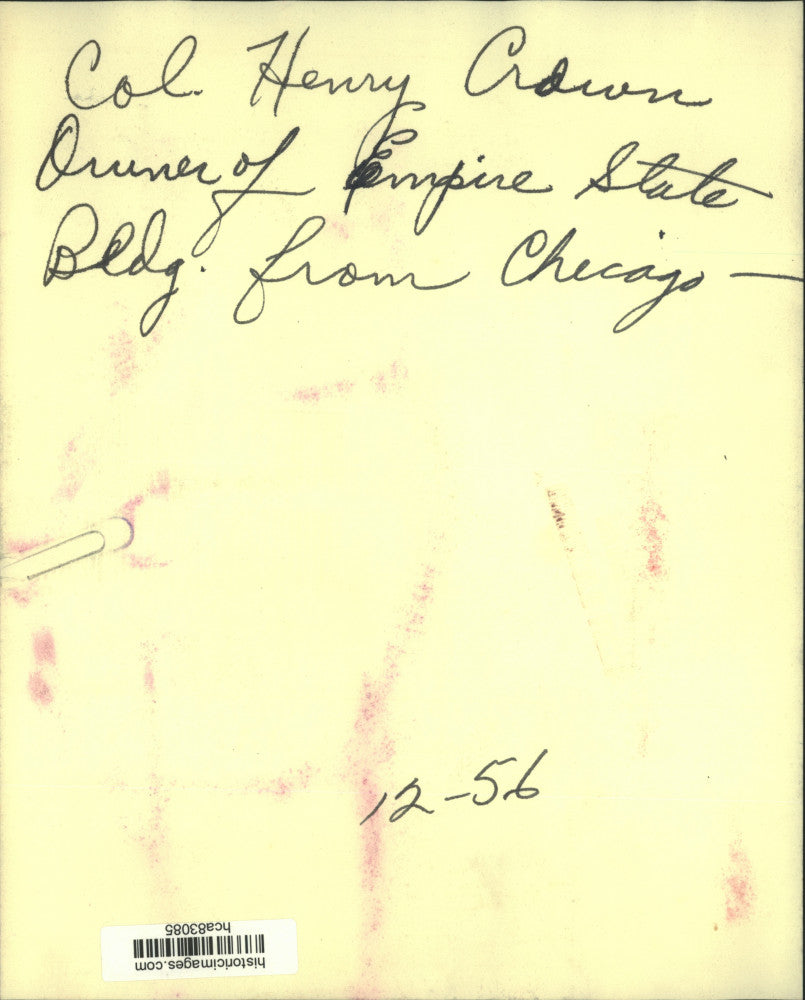 Col. Henry Crown
Owner of Empire State
Bldg. from Chicago —
12-56
hca83085
historicimages.com